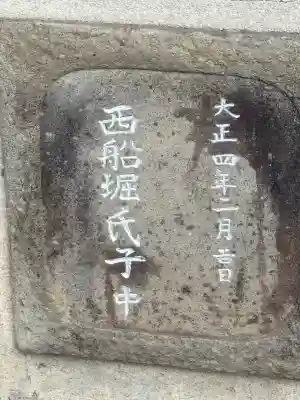 大正四年二月吉日
西船堀氏子中